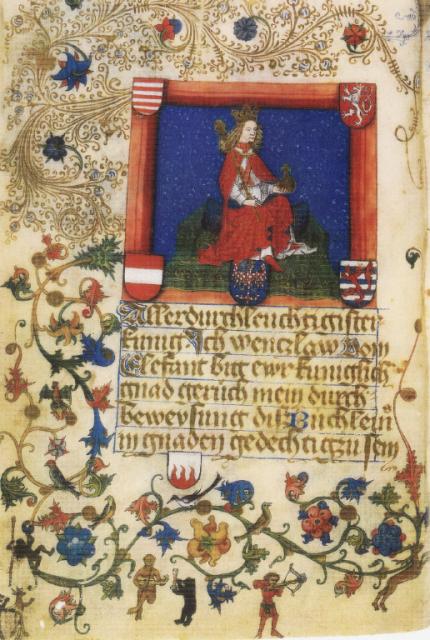 Allerdurchleuchtigister
kunig Ich wenczlaw von
Olefant bitt ewr kuniglich
gnad geruch mein durch
beweysung diss Buchlein
in gnaden gedechtig zu sein